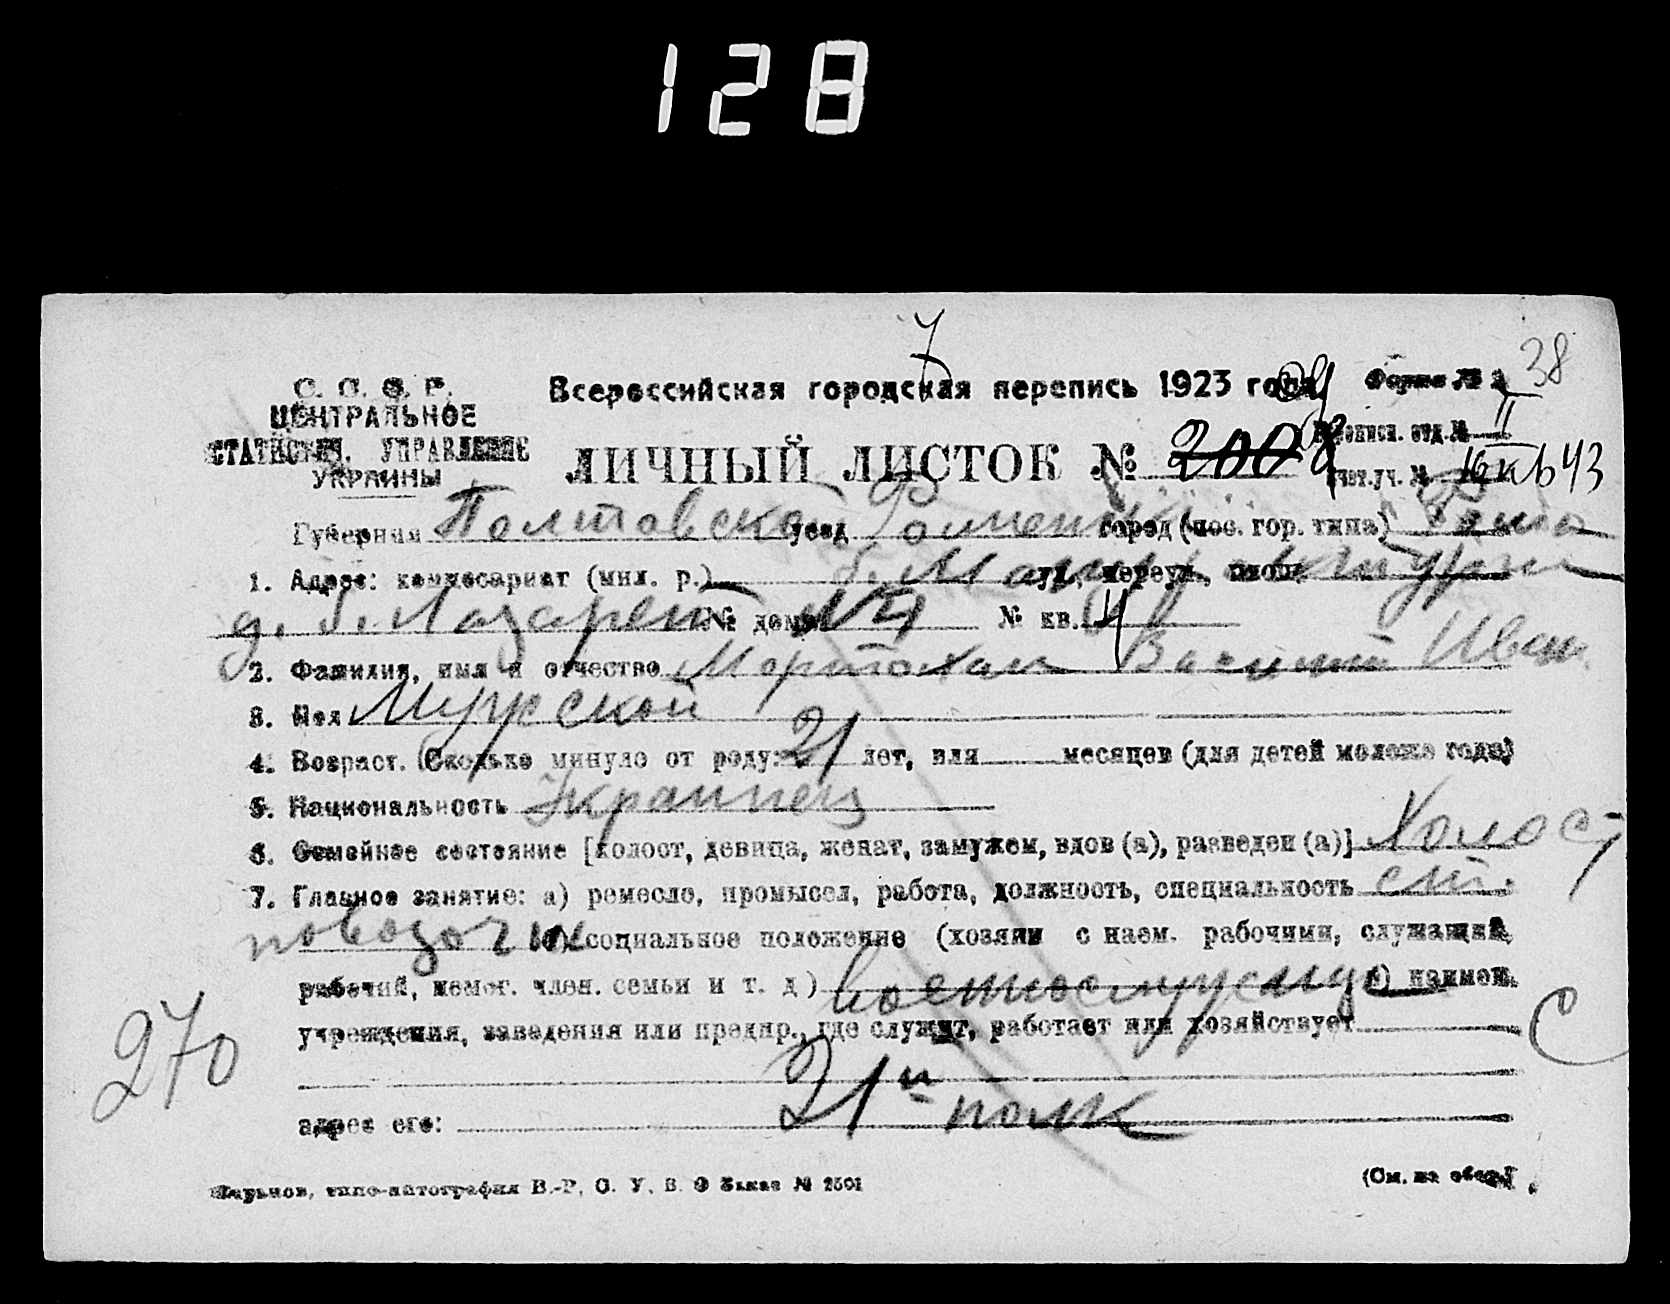 128
7
38
С. С. С. Р.
ЦЕНТРАЛЬНОЕ
СТАТИСТИЧ. УПРАВЛЕНИЕ
УКРАИНЫ
Всероссийская городская перепись 1923 года
Форма № 2
ЛИЧНЫЙ ЛИСТОК № 200
Переписн. отд. № II
Счет. уч. № 43
Губерния Полтавская уезд Роменский город (пос. гор. типа) Ромны
1. Адрес: комиссариат (мил. р.) ул., переул., площ.
№ дома № кв. 4
2. Фамилия, имя и отчество Василий Иван.
3. Пол Мужской
4. Возраст. (Сколько минуло от роду: 21 лет, или месяцев (для детей моложе года)
5. Национальность Украинец
6. Семейное состояние [холост, девица, женат, замужем, вдов (а), разведен (а)] Холост
7. Главное занятие: а) ремесло, промысел, работа, должность, специальность ст.
повозочн б) социальное положение (хозяин с наем. рабочими, служащий,
рабочий, немог. член. семьи и т. д) военнослужащ в) наимен.
учреждения, заведения или предпр., где служит, работает или хозяйствует
С
270
21й полк
адрес его:
Харьков, типо-литография В.-Р. С. У. В. О Заказ № 2501
(См. на обор.)